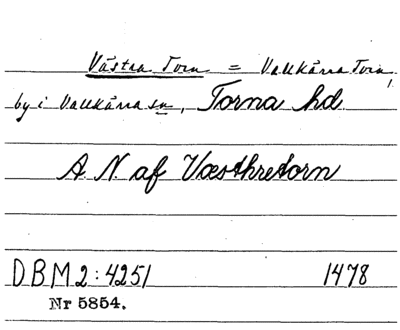 Västra Torn = Vallkärra Torn,
by i Vallkärra sn, Torna hd
A N af Væsthretorn
DBM 2:4251 1478
Nr 5854.